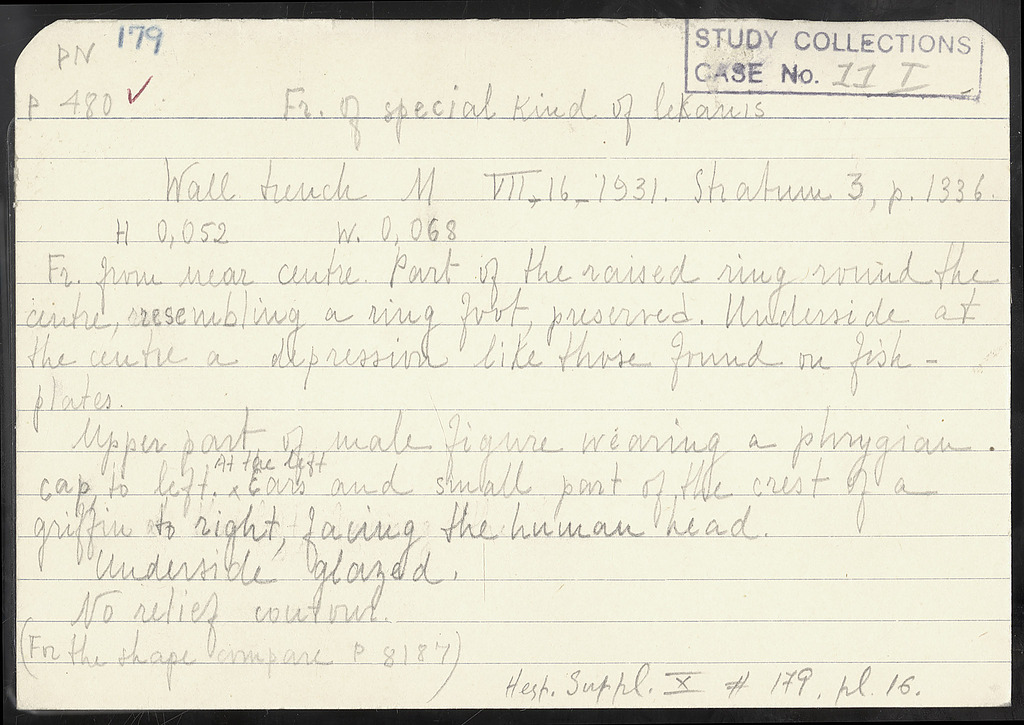 PN 179
STUDY COLLECTIONS
CASE No. 11 I
P 480 ✓ Fr. of special kind of lekanis
Wall trench M VII-16-1931. Stratum 3, p. 1336.
H 0,052 W. 0,068
Fr. from near centre. Part of the raised ring round the
centre, resembling a ring foot, preserved. Underside at
the centre a depression like those found on fish-
plates.
Upper part of male figure wearing a phrygian.
At the left
cap, to left. x Ears and small part of the crest of a
griffin to right, facing the human head.
Underside glazed.
No relief contour.
(For the shape compare P 8187)
Hesp. Suppl. X # 179, pl. 16.